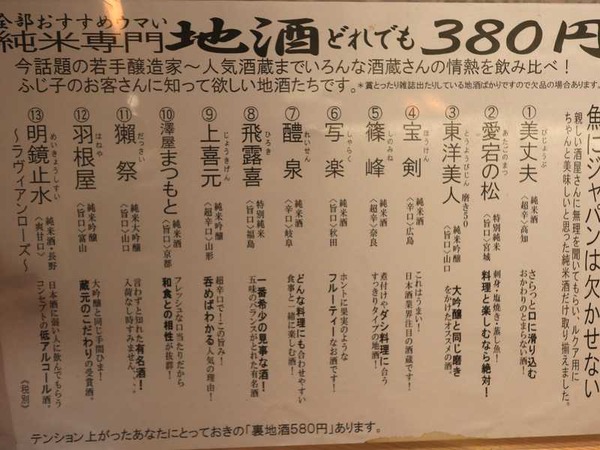 全部おすすめウマい
純米専門 地酒 どれでも 380円
今話題の若手醸造家～人気酒蔵までいろんな酒蔵さんの情熱を飲み比べ！
ふじ子のお客さんに知って欲しい地酒たちです。*賞とったり雑誌出たりしている地酒ばかりですので欠品の場合あります。
魚にジャパンは欠かせない
親しい酒屋さんに無理を聞いてもらい、ルクア用に
ちゃんと美味しいと思った純米酒だけ取り揃えました。
①美丈夫 びじょうふ
純米酒
〈超辛口〉高知
さらっと口に滑り込む
おかわりのとまらない酒！
②愛宕の松 あたごのまつ
特別純米
〈旨口〉宮城
刺身・塩焼き・蒸し魚！
料理と楽しむなら絶対！
③東洋美人 とうようびじん
純米吟醸 磨き50
〈旨口〉山口
大吟醸と同じ磨き
をかけたオススメの酒。
④宝剣 ほうけん
純米酒
〈辛口〉広島
これはうまい！
日本酒業界注目の酒蔵です！
⑤篠峰 しのみね
純米酒
〈超辛〉奈良
煮付けやダシ料理に合う
すっきりタイプの地酒！
⑥写楽 しゃらく
純米酒
〈旨口〉秋田
ホントに果実のような
フルーティーなお酒です！
⑦醴泉 れいせん
純米酒
〈辛口〉岐阜
どんな料理にも合わせやすい
食事と一緒に楽しむ酒！
⑧飛露喜 ひろき
特別純米
〈旨口〉福島
一番希少の見事な酒！
五味のバランスがとれた有名酒
⑨上喜元 じょうきげん
純米吟醸
〈超辛口〉山形
超辛口でこの旨み！
呑めばわかる人気の理由！
⑩澤屋まつもと
純米酒
〈旨口〉京都
フレッシュな口当たりだから
和食との相性が抜群！
⑪獺祭 だっさい
純米大吟醸
〈旨口〉山口
言わずと知れた有名酒！
入荷なし時すみません。
⑫羽根屋 はねや
純米吟醸
〈旨口〉富山
大吟醸と同じ手間ひま！
蔵元のこだわりの受賞酒。
⑬明鏡止水 めいきょうしすい
～ラヴィアンローズ～
純米酒・長野
〈爽甘口〉
日本酒に弱い人に飲んでもらう
コンセプトの低アルコール酒。
《税別》
テンション上がったあなたにとっておきの「裏地酒580円」あります。